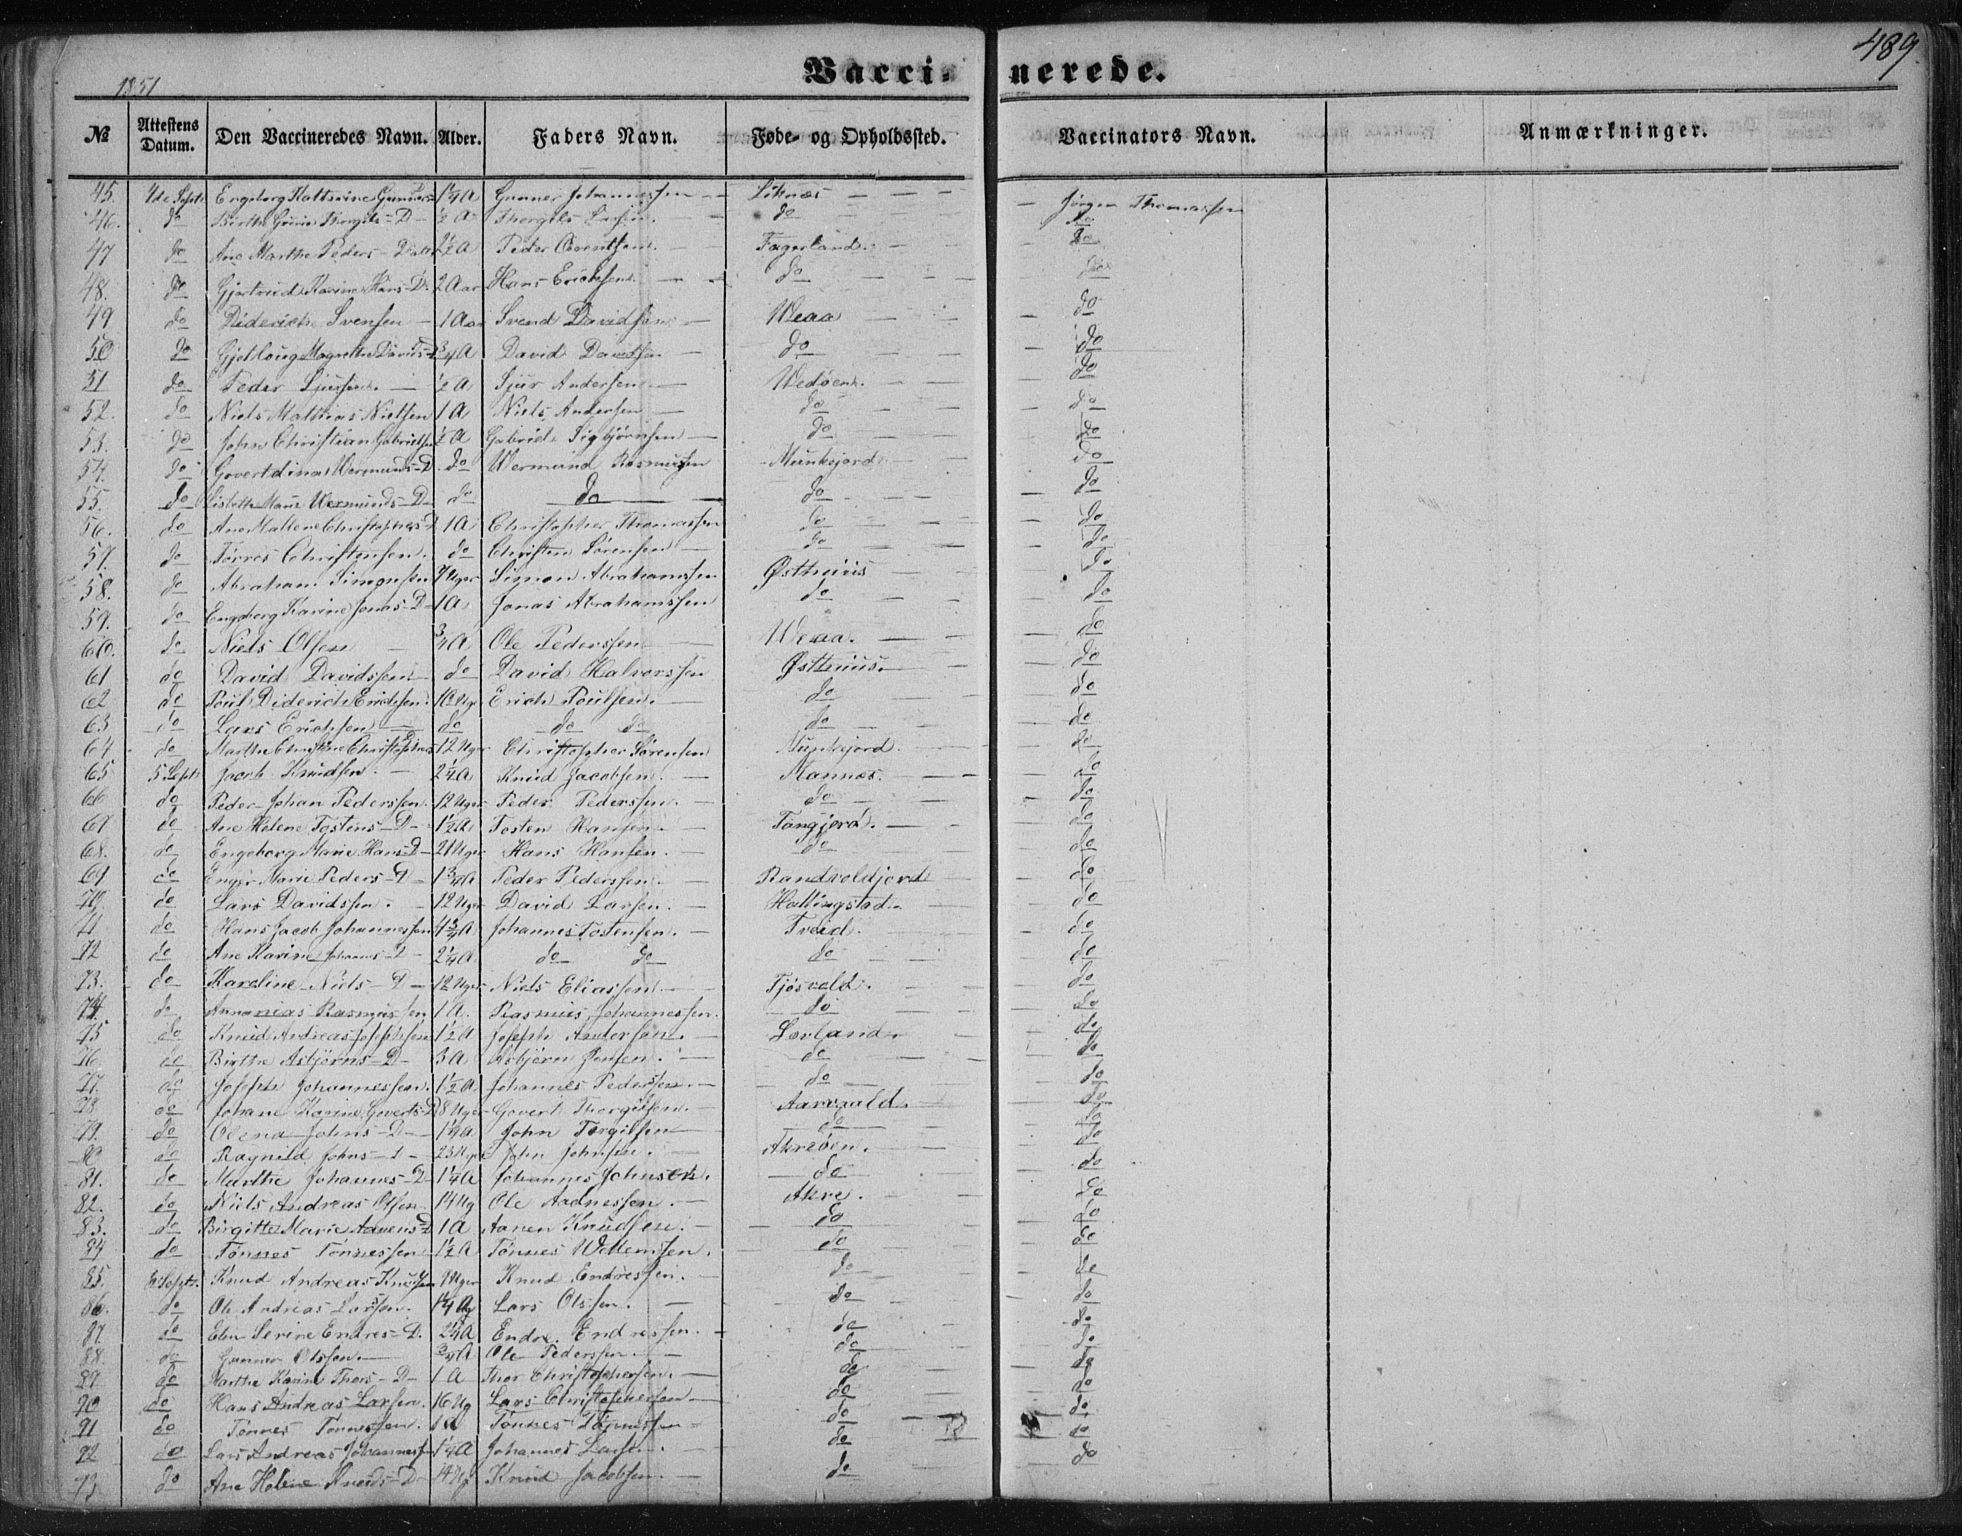 489.
1851
Vaccinerede.
№ Attestens Datum. Den Vaccineredes Navn. Alder. Faders Navn. Føde- og Opholdssted. Vaccinators Navn. Anmærkninger.
45. 4de Septb Engeborg Gunners 1¼A Gunner Johannessen Liknæs Jørgen Thomassen
46. do Thorgils-D ½ A Thorgils Larsen do do
47 do Ane Marthe Peders-Datt 2½A Peder Fagerland do
48. do Gjertrud Karine Hans-D. 2 Aar Hans Erichsen do do
49 do Diderich Svensen 1 Aar Svend Davidsen Weaa do
50 do Magrethe Davids-D ¾A David Davidsen do do
51 do Peder Sjursen. ½ A Sjur Andersen Wedøen. do
52. do Niels Mathias Nielsen 1 A Niels Andersen do do
53. do John Christian Gabrielsen ½ A Gabriel Sigbjørnsen do do
54. do Govertdina Wermunds-D do Wermund Rasmussen Munkejord do
55. do Lisbeth Marie Wermunds-D do do do do
56. do Ane Mallene Christophers-D 1A Christopher Thomassen do do
57. do Tørres Christensen. do Christen Sørensen do do
58. do Abraham Simonsen 7 Uger Simon Abrahamsen Østhuus do
59. do Engeborg Karine Jonas-D 1A Jonas Abrahamssen do do
60. do Niels Olsen ¾A Ole Pederssen Weaa. do
61 do David Davidssen do David Halvorssen Østhuus. do
62 do Poul Diderich Erichsen. 10 Ug Erich Poulsen. do do
63 do Lars Erichsen do do do do do
64 do Marthe Christine Christophers 12 Uger Christopher Sørensen Munkejord. do
65 5 Septb Jacob Knudsen. 2¼A Knud Jacobsen. Mannes. do
66 do Peder Johan Pederssen. 12 Uger Peder Pederssen. do do
67 do Ane Helene Tostens-D 1½A Tosten Hansen. Tangjerd. do
68. do Engeborg Marie Hans-D 21 Uger Hans Hansen. do do
69 do Enger Marie Peders-D 1¾A Peder Pederssen. do
70 do Lars Davidssen. 12 Uger David Larsen. Hollingstad. do
71 do Hans Jacob Johannessen Johannes Tostensen. Treid. do
72 do Ane Karine Johannes-D 2¼A do do do do
73. do Karoline Niels-D 12 Uger Niels Eliassen. Tjøsvold. do
74. do Annanias Rasmussen 1A. Rasmus Johannessen. do do
75 do Knud Andreas Josephsen 1½A Joseph Andersen. Lorland do
76. do Birthe Asbjørns-D 3A Asbjørn Jensen. do do
77. do Joseph Johannessen. 1½A Johannes Pederssen. do do
78 do Johane Karine Goverts-D 8 Uger Govert Thorgilsen. Aarvaald. do
79. do Olena Johns-D 1¼A John Torgilsen do do
80 do Ragnild Johns-D John Johnsen. Akreøen. do
81. do Marthe Johannes-D 1¼A Johannes Johnsen. do do
82. do Niels Andreas Olsen. 14 Ug Ole Aadnessen. Akre. do
83. do Birgitte Marie Aanens-D 1A Aanen Knudsen. do do
84 do Tønnes Tønnessen 1½A Tønnes Willemsen. do do
85. 6 Septr. Knud Andreas Knudsen Uger Knud Endressen. do do
86. do Ole Andreas Larssen. 1¼A Lars Olssen. do do
87. do Elen Serine Endres-D. 2¼A Endre Endressen. do do
88. do Gunner Olssen. ¾A Ole Pederssen. do do
89. do Marthe Karine Thors-D 1A Thor Christophersen. do do
90 do Hans Andreas Larsen. 16 Ug Lars Christophersen do do
91 do Tønnes Tønnessen. Tønnes Tønnessen do do
92 do Lars Andreas Johannessen 1¼A Johannes Larsen. do do
93. do Ane Helene Knuds-D 14 Ug Knud Jacobsen. do